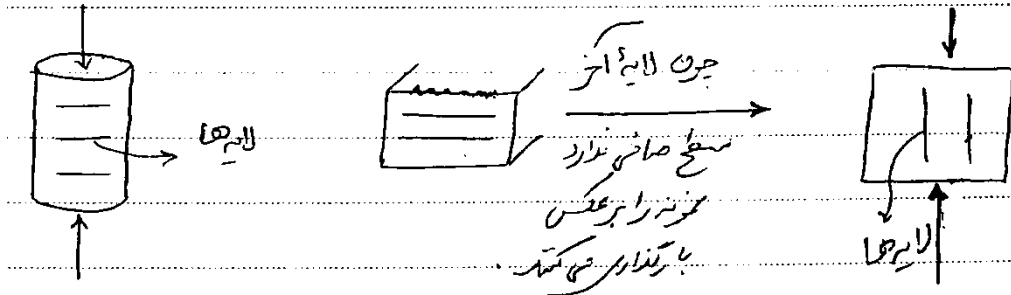 لایه‌ها
چون لایهٔ آخر
سطح صافی ندارد
نمونه را برعکس
بارگذاری می‌کنند.
لایه‌ها